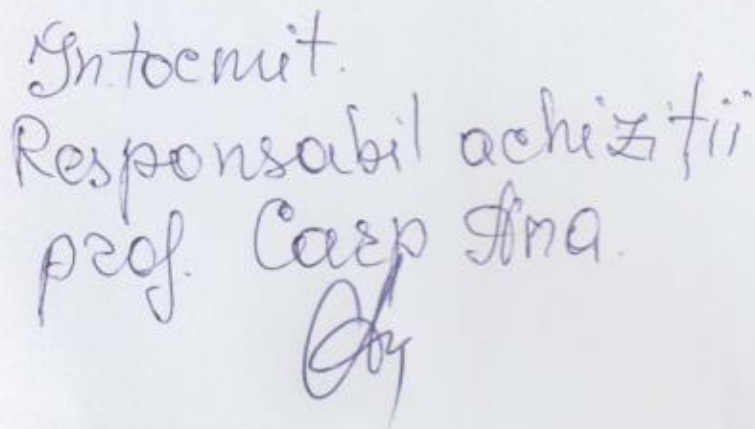 Intocmit.
Responsabil achiziții
prof. Carp Ana.